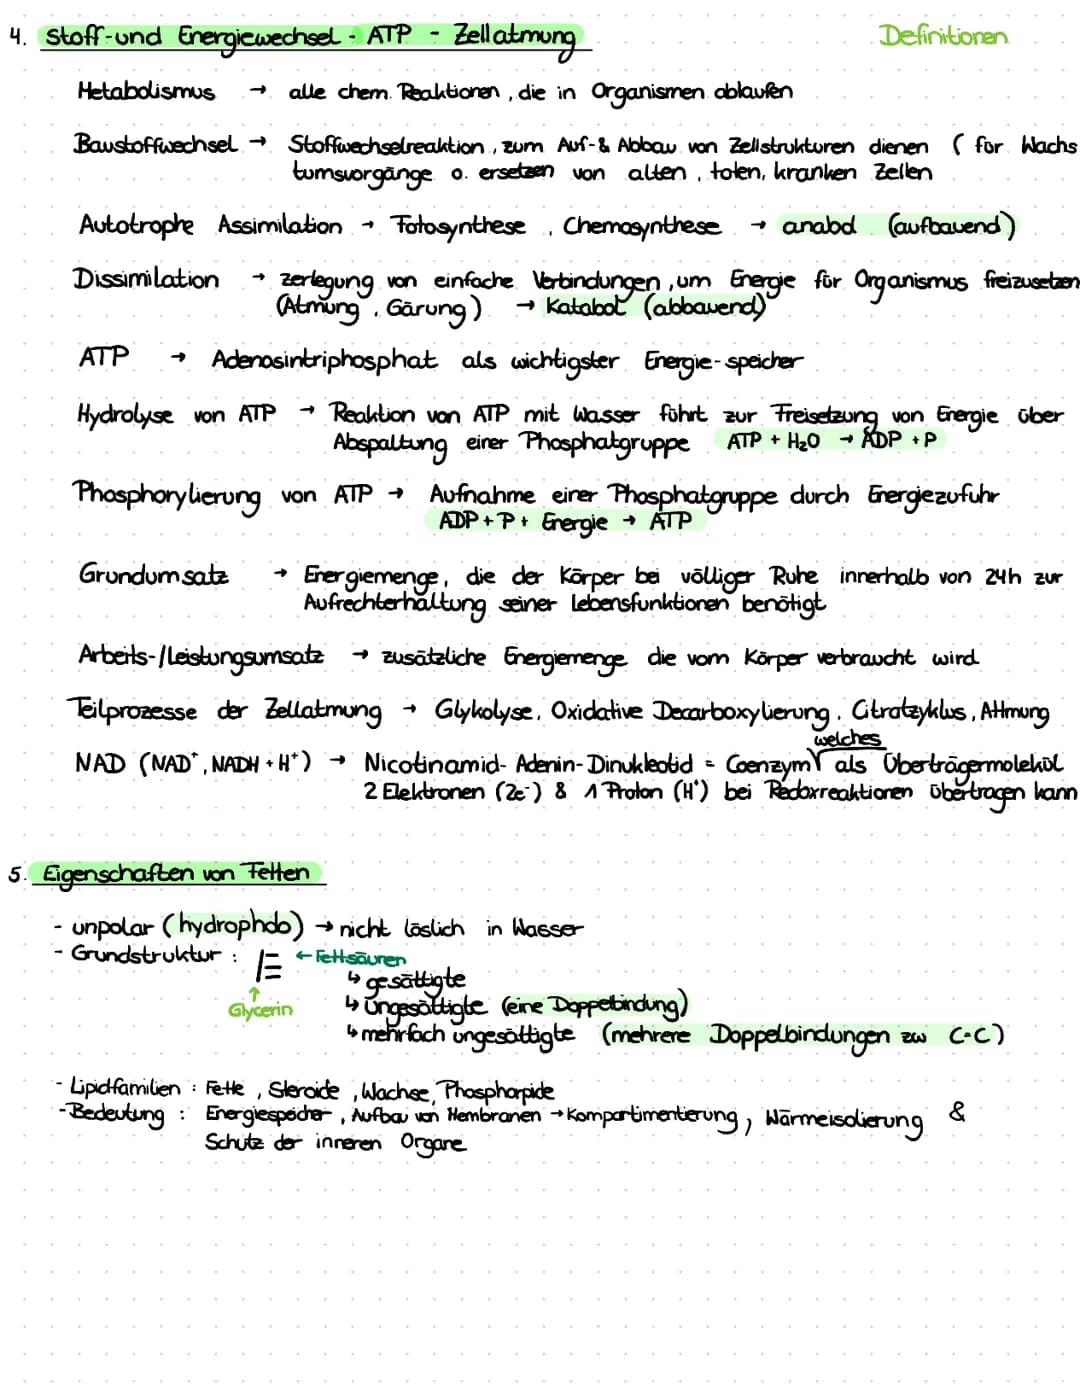 4. Stoff-und Energiewechsel - ATP - Zellatmung Definitionen
Metabolismus → alle chem. Reaktionen, die in Organismen ablaufen
Baustoffwechsel → Stoffwechselreaktion, zum Auf-& Abbau von Zellstrukturen dienen (für Wachs
tumsvorgänge o. ersetzen von alten, toten, kranken Zellen
Autotrophe Assimilation → Fotosynthese, Chemosynthese → anabol (aufbauend)
Dissimilation → zerlegung von einfache Verbindungen, um Energie für Organismus freizusetzen
(Atmung, Gärung) → Katabol (abbauend)
ATP → Adenosintriphosphat als wichtigster Energie-speicher
Hydrolyse von ATP → Reaktion von ATP mit Wasser führt zur Freisetzung von Energie über
Abspaltung einer Phosphatgruppe ATP + H₂O → ADP + P
Phosphorylierung von ATP → Aufnahme einer Phosphatgruppe durch Energiezufuhr
ADP + P + Energie → ATP
Grundumsatz → Energiemenge, die der Körper bei völliger Ruhe innerhalb von 24h zur
Aufrechterhaltung seiner Lebensfunktionen benötigt
Arbeits-/Leistungsumsatz → zusätzliche Energiemenge die vom Körper verbraucht wird
Teilprozesse der Zellatmung → Glykolyse, Oxidative Decarboxylierung, Citratzyklus, Attmung
welches
NAD (NAD⁺, NADH + H⁺) → Nicotinamid-Adenin-Dinukleotid = Coenzym als Überträgermolekül
2 Elektronen (2e⁻) & 1 Proton (H⁺) bei Redoxreaktionen übertragen kann
5. Eigenschaften von Fetten
- unpolar (hydrophob) → nicht löslich in Wasser
- Grundstruktur : ← Fettsäuren
↳ gesättigte
↑ Glycerin ↳ ungesättigte (eine Doppelbindung)
↳ mehrfach ungesättigte (mehrere Doppelbindungen zw C-C)
- Lipidfamilien : Fette, Steroide, Wachse, Phosphorpide
- Bedeutung : Energiespeicher, Aufbau von Membranen → Kompartimentierung, Wärmeisolierung &
Schutz der inneren Organe